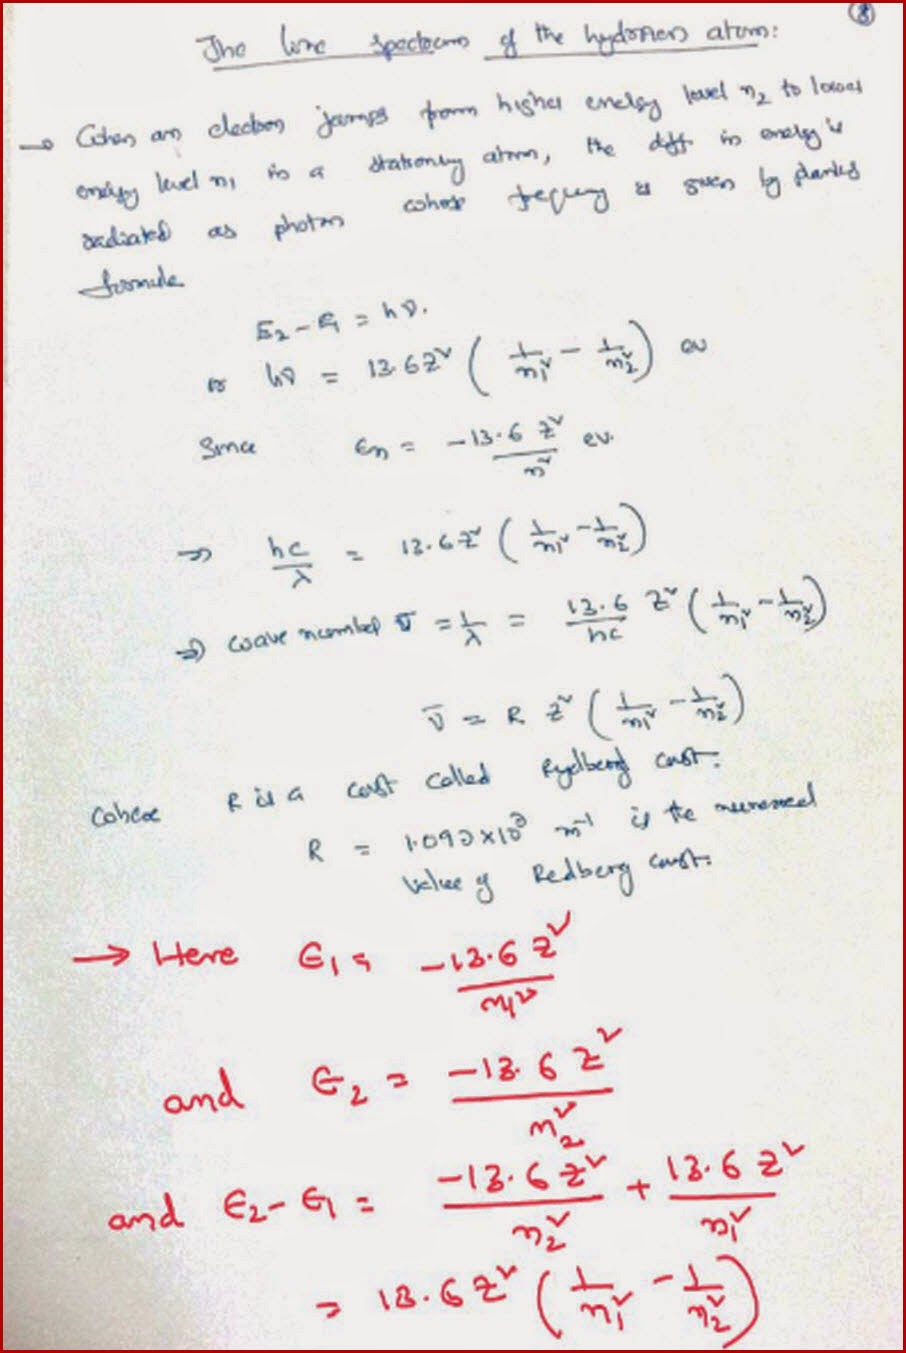 8
The line spectrum of the hydrogen atom:
→ When an electron jumps from higher energy level n₂ to lower
energy level n₁ in a stationary atom, the diff in energy is
radiated as photon whose frequency is given by planks
formula
E₂ - E₁ = hν.
or hν = 13.6 Z² ( 1/n₁² - 1/n₂² ) ev
Since En = -13.6 Z²/n² ev.
⇒ hc/λ = 13.6 Z² ( 1/n₁² - 1/n₂² )
⇒ wave number ν̄ = 1/λ = 13.6/hc Z² ( 1/n₁² - 1/n₂² )
ν̄ = R Z² ( 1/n₁² - 1/n₂² )
where R is a const called Rydberg const.
R = m⁻¹ is the numerical
value of Redberg const.
→ Here E₁ = -13.6 Z²/n₁²
and E₂ = -13.6 Z²/n₂²
and E₂ - E₁ = -13.6 Z²/n₂² + 13.6 Z²/n₁²
= 13.6 Z² ( 1/n₁² - 1/n₂² )